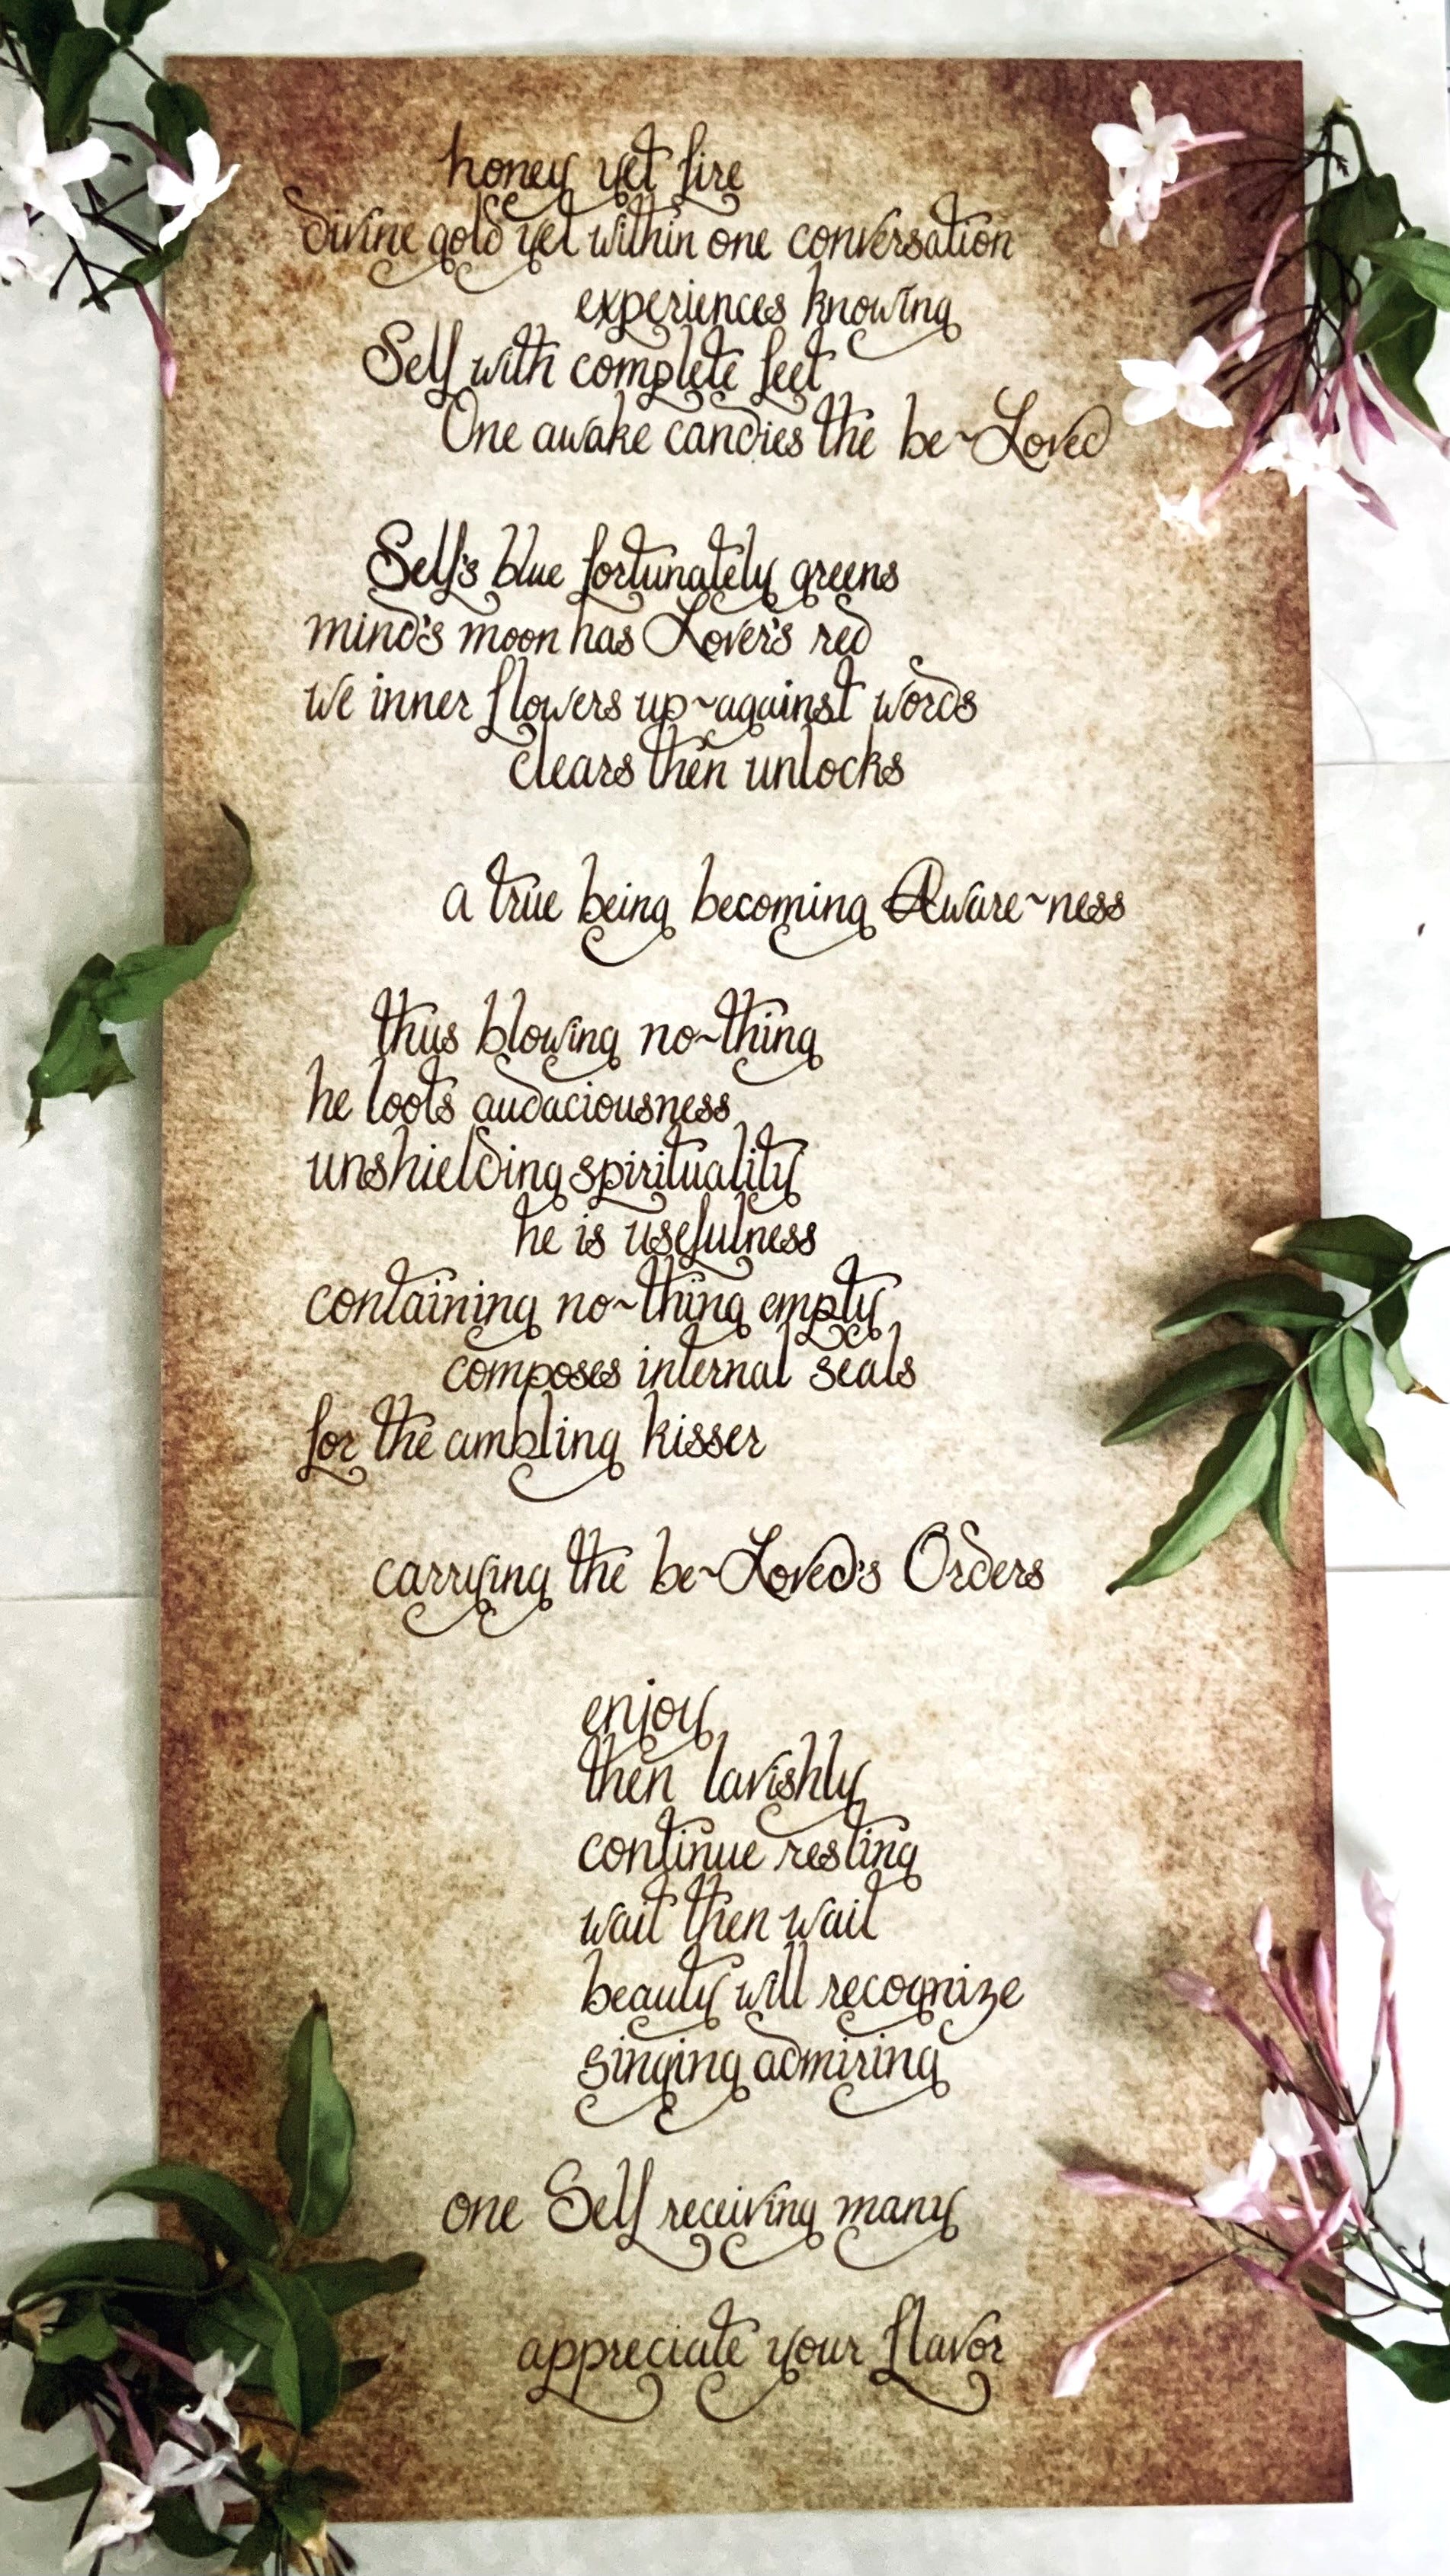 honey yet fire
divine gold yet within one conversation
experiences knowing
Self with complete feet
One awake candies the be~Loved
Self's blue fortunately greens
mind's moon has Lover's red
we inner flowers up~against words
clears then unlocks
a true being becoming Aware~ness
thus blowing no~thing
he loots audaciousness
unshielding spirituality
he is usefulness
containing no~thing empty
composes internal seals
for the ambling kisser
carrying the be~Loved's Orders
enjoy
then lavishly
continue resting
wait then wait
beauty will recognize
singing admiring
one Self receiving many
appreciate your flavor